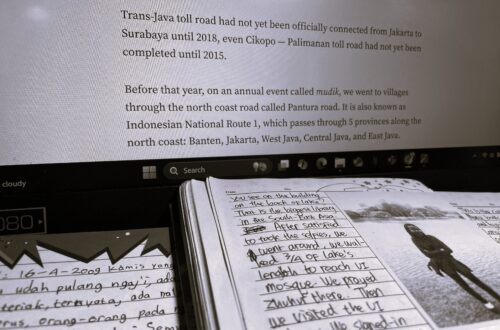 Trans-Java toll road had not yet been officially connected from Jakarta to
Surabaya until 2018, even Cikopo — Palimanan toll road had not yet been
completed until 2015.
Before that year, on an annual event called mudik, we went to villages
through the north coast road called Pantura road. It is also known as
Indonesian National Route 1, which passes through 5 provinces along the
north coast: Banten, Jakarta, West Java, Central Java, and East Java.
cloudy
Search
080
16-4-2009 Kamis
udah pulang ngaji, ada
teriak, ternyata ada
orang-orang pada
You see on the building
on the back of lake?
That is the biggest library
in the South East Asia
After satisfied
to took the selfies, we
went around, we wal
ked 3/4 of lake's
to reach UI
mosque. We prayed
Zhuhur there. Then
we visited the UI